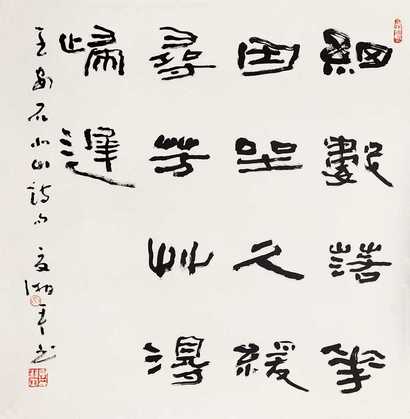 細數落花
因坐久緩
尋芳艸得
歸遲
王安石北山詩句 夏湘平书